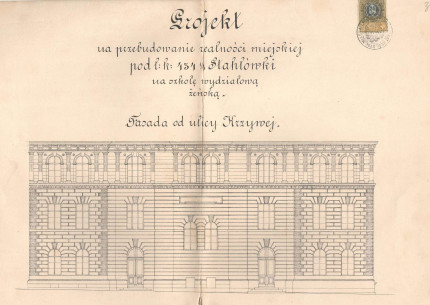 Projekt
na przebudowanie realności miejskiej
pod l: k: 434 ¼ Stahlówki
na szkołę wydziałową
żeńską.
Fasada od ulicy Krzywej.